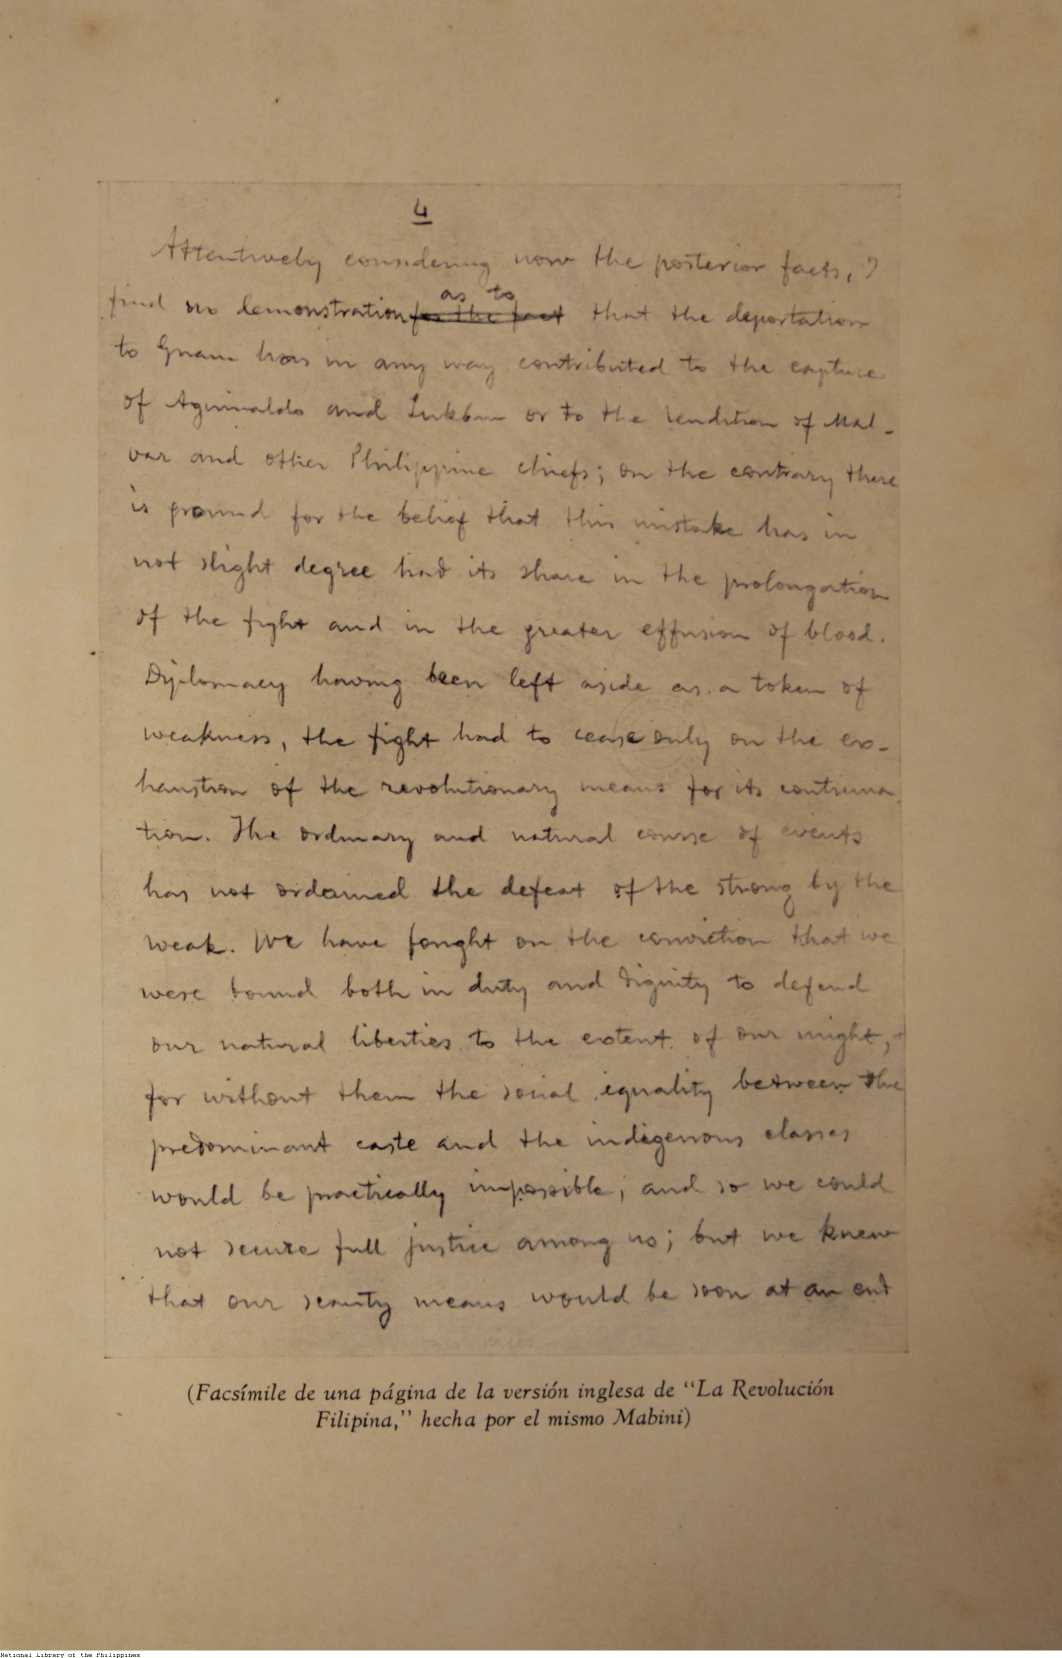 4
Attentively considering now the posterior facts, I
find no demonstration for the fact as to that the deportation
to Guam has in any way contributed to the capture
of Aguinaldo and Lukban or to the rendition of Mal-
var and other Philippine chiefs; on the contrary there
is ground for the belief that this mistake has in
not slight degree had its share in the prolongation
of the fight and in the greater effusion of blood.
Diplomacy having been left aside as a token of
weakness, the fight had to cease only on the ex-
haustion of the revolutionary means for its continua
tion. The ordinary and natural course of events
has not ordained the defeat of the strong by the
weak. We have fought on the conviction that we
were bound both in duty and dignity to defend
our natural liberties to the extent of our might,
for without them the social equality between the
predominant caste and the indigenous classes
would be practically impossible; and so we could
not secure full justice among us; but we knew
that our scanty means would be soon at an end
(Facsímile de una página de la versión inglesa de “La Revolución
Filipina,” hecha por el mismo Mabini)
National Library of the Philippines